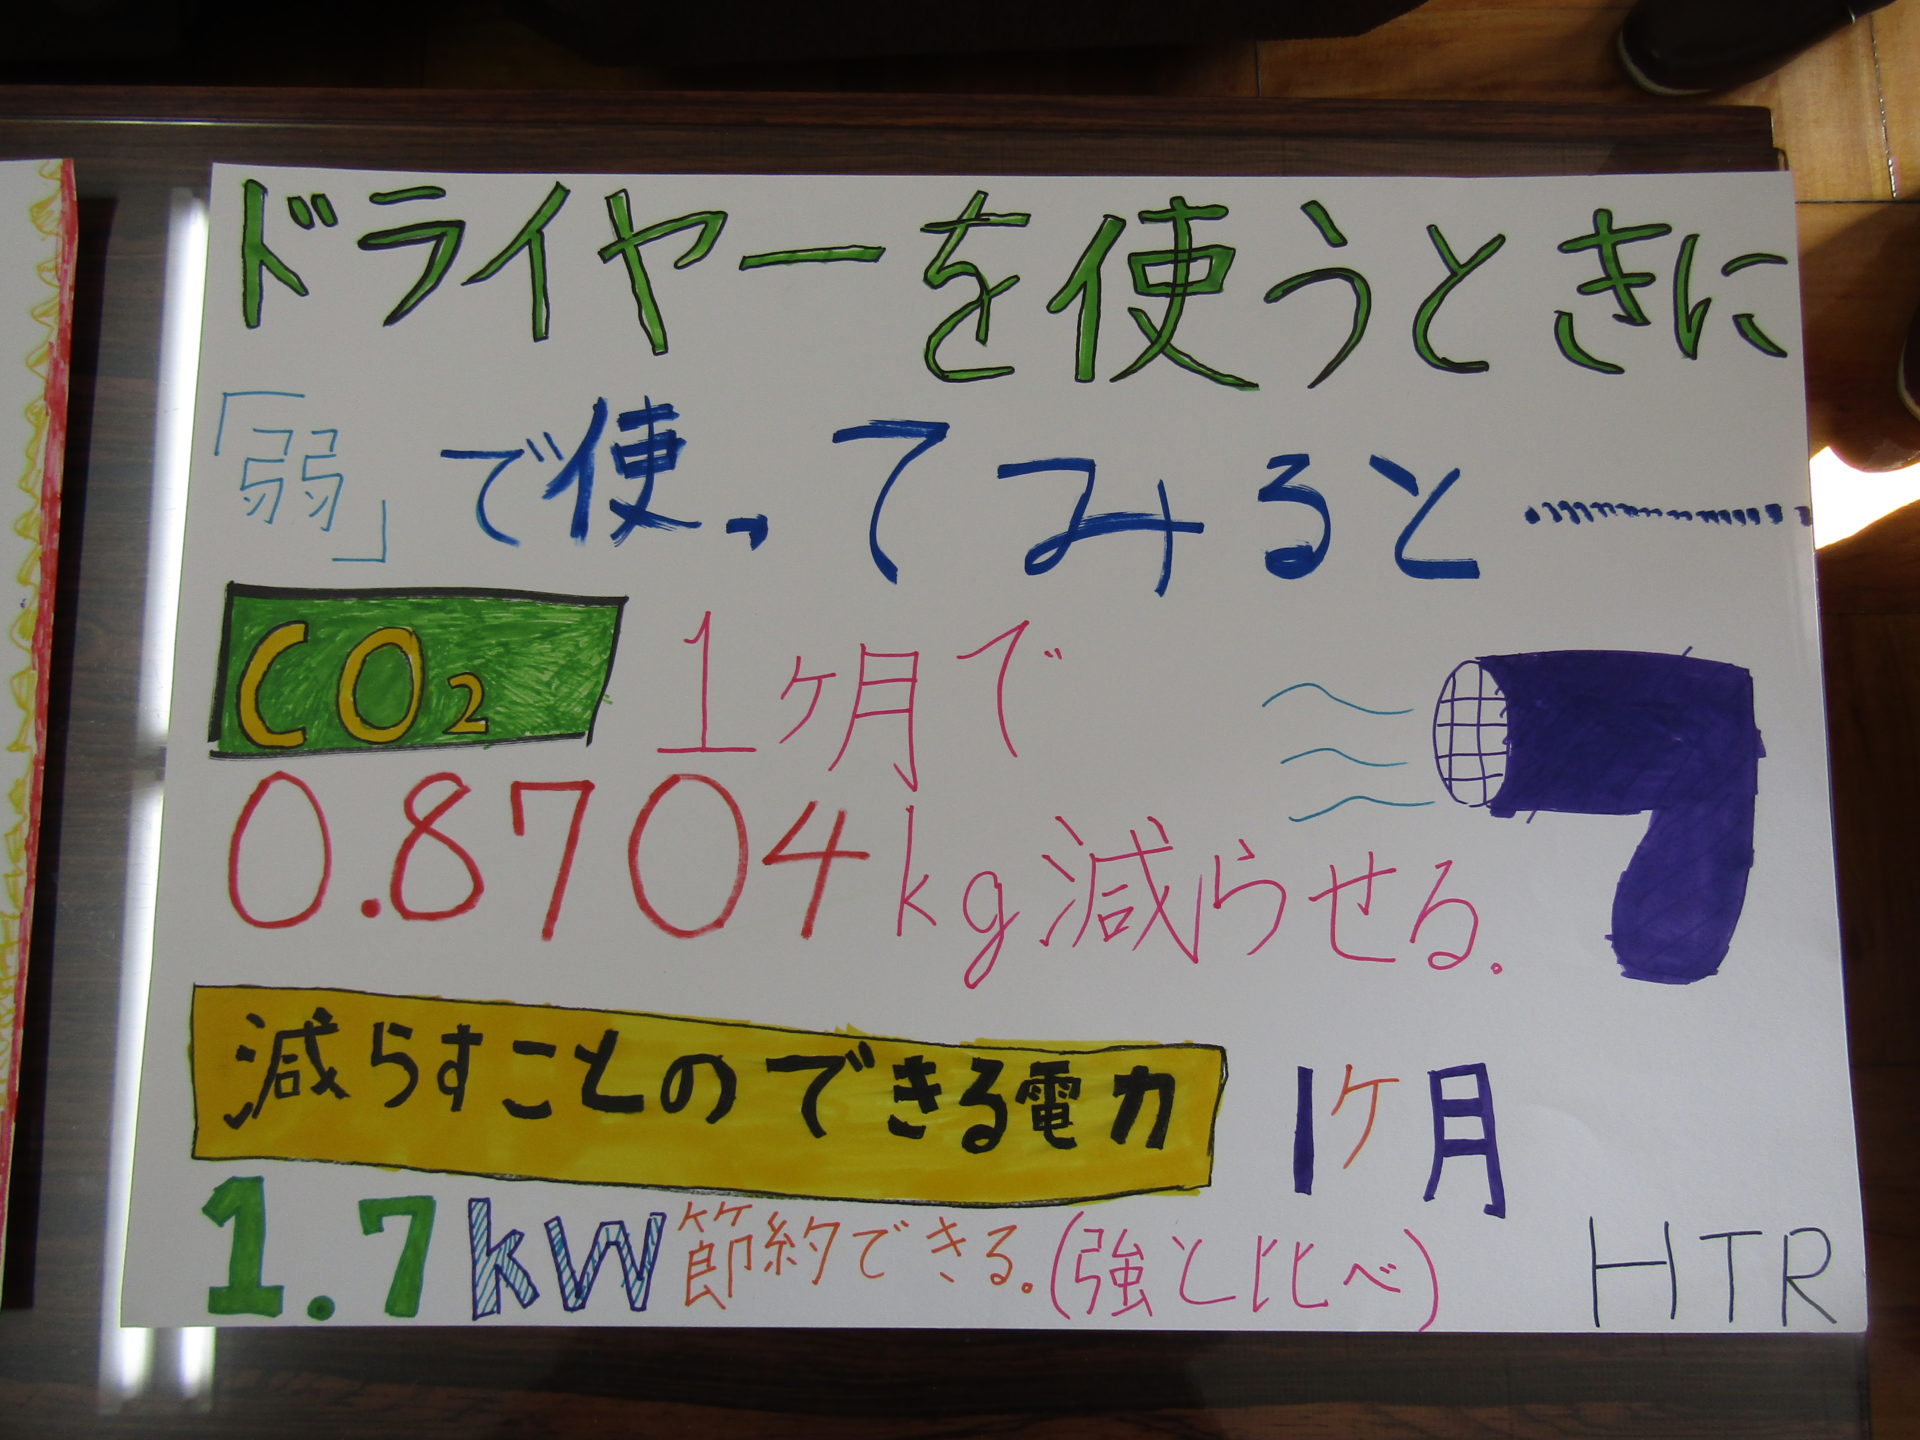 ドライヤーを使うときに
「弱」で使ってみると…………
CO₂ 1ヶ月で
0.8704kg減らせる.
減らすことのできる電力 1ヶ月
1.7kW節約できる.(強と比べ)
HTR